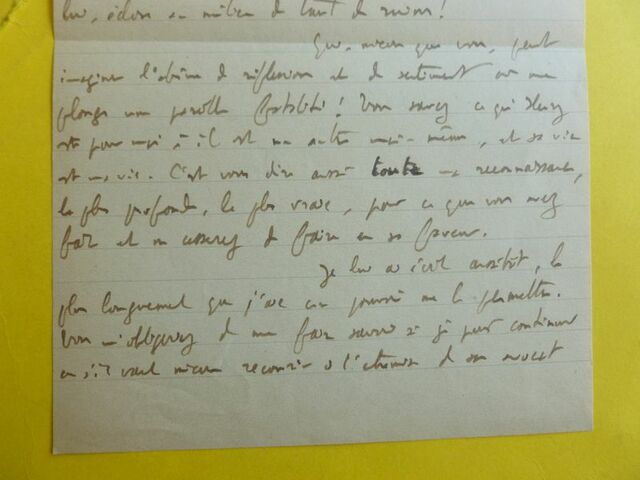 lui, éclos au milieu de tant de ruines!
Qui, mieux que vous, peut
imaginer l'abîme de réflexions et de sentiment où me
plonge une pareille fatalité! Vous savez ce qu'Henry
est pour moi; il est un autre moi-même, et sa vie
est ma vie. C'est vous dire aussi toute ma reconnaissance,
la plus profonde, la plus vraie, pour ce que vous avez
fait et ne cesserez de faire en sa faveur.
Je lui ai écrit aussitôt, le
plus longuement que j'aie cru pouvoir me le permettre.
Vous m'obligerez de me faire savoir si je peux continuer
ou s'il vaut mieux recourir à l'entremise de son avocat